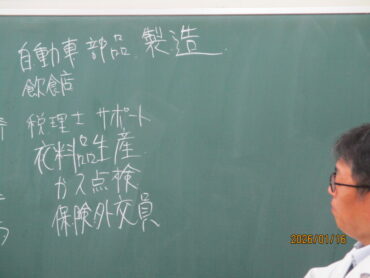 自動車部品 製造
飲食店
税理士 サポート
衣料品生産
ガス点検
保険外交員
2026/01/16